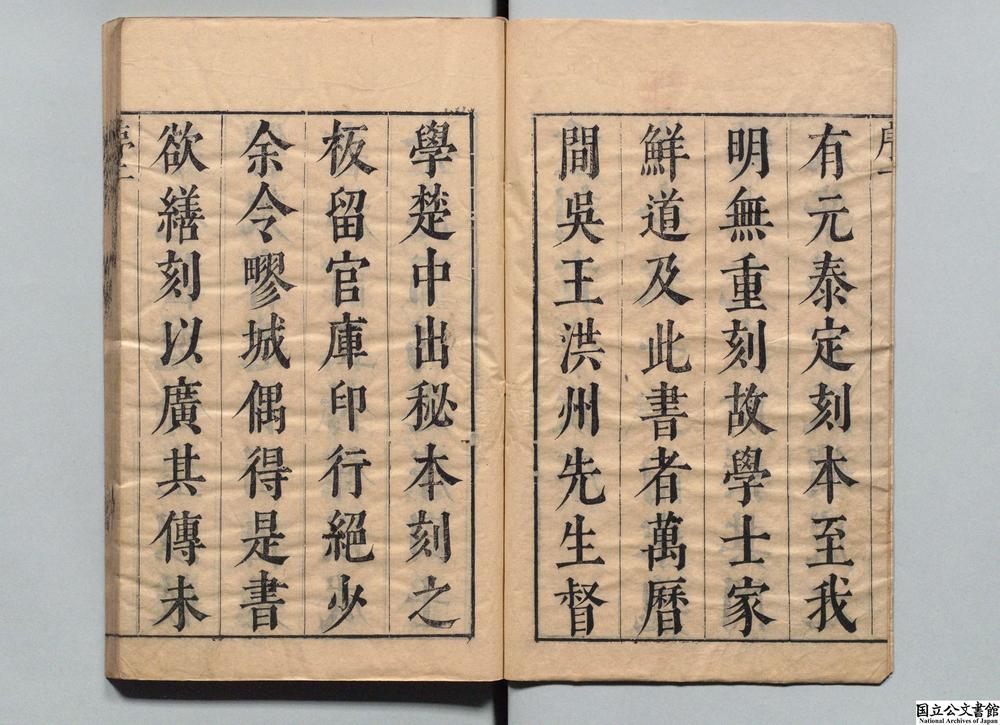 序一
有元泰定刻本至我
明無重刻故學士家
鮮道及此書者萬曆
間吳王洪州先生督
學楚中出秘本刻之
板留官庫印行絕少
余令疁城偶得是書
欲繕刻以廣其傳未
国立公文書館
National Archives of Japan